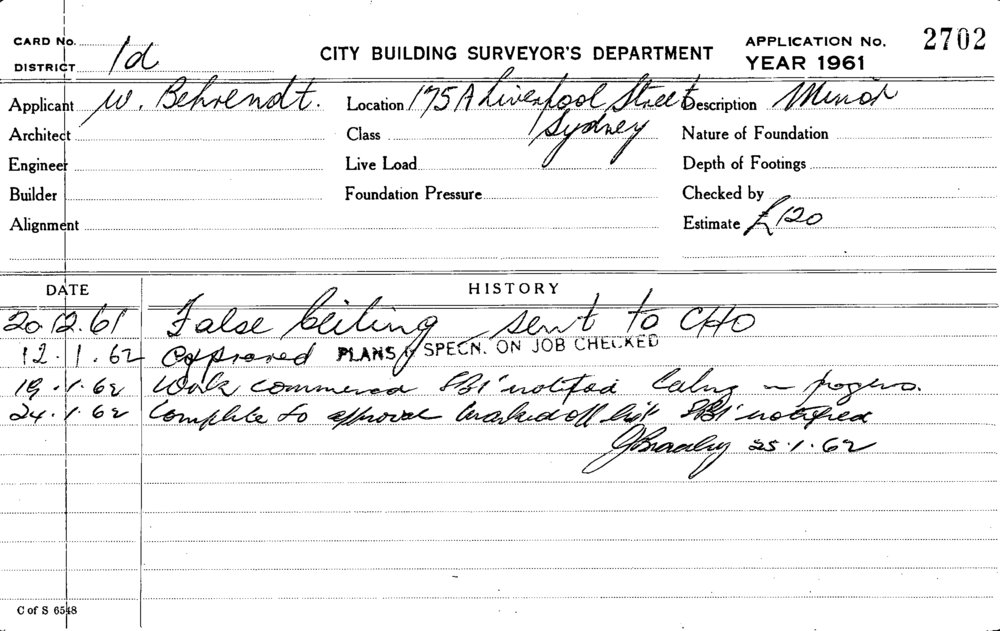 CARD No.
DISTRICT 1d
CITY BUILDING SURVEYOR'S DEPARTMENT
APPLICATION No. 2702
YEAR 1961
Applicant W. Behrendt. Location 175A Liverpool Street Sydney Description Minor
Architect Class Nature of Foundation
Engineer Live Load Depth of Footings
Builder Foundation Pressure Checked by
Alignment Estimate £120
DATE HISTORY
20.12.61 False Ceiling sent to CHO
12.1.62 Approved PLANS & SPECN. ON JOB CHECKED
19.1.62 Work commenced notified Ceiling in progress.
24.1.62 Complete to approval marked off list notified
25.1.62
C of S 6548